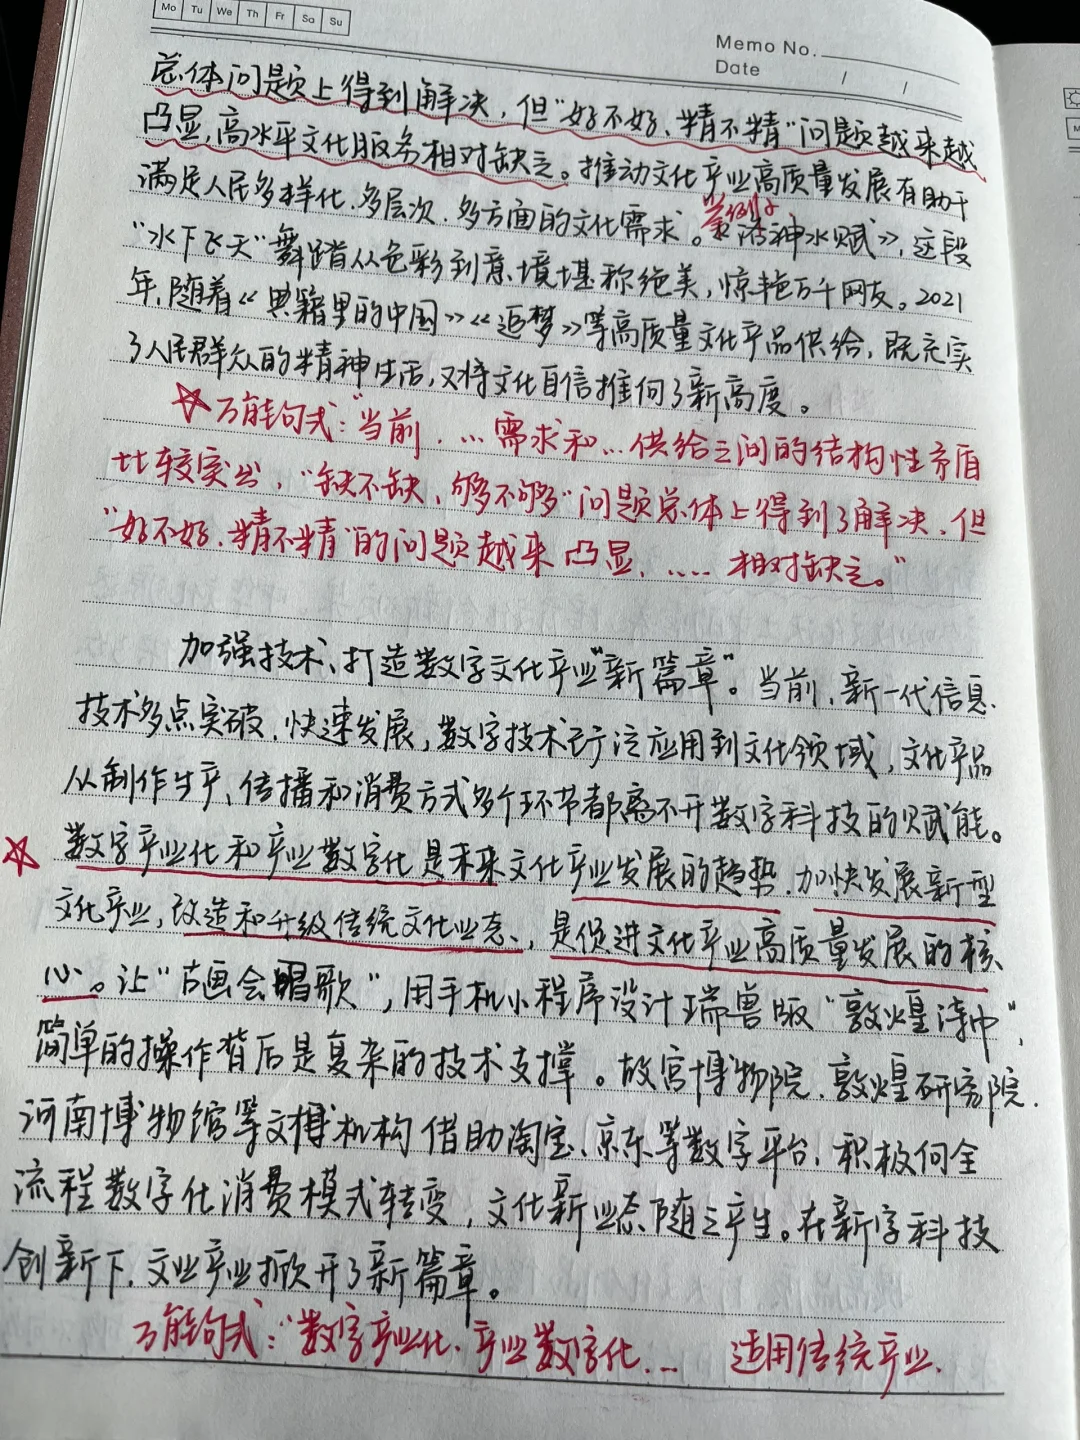 Mo Tu We Th Fr Sa Su
Memo No.
Date / /
总体问题上得到解决，但“好不好、精不精”问题越来越
凸显，高水平文化服务相对缺乏。推动文化产业高质量发展有助于
满足人民多样化、多层次、多方面的文化需求。
举例子
《洛神水赋》，这段
“水下飞天”舞蹈从色彩到意境堪称绝美，惊艳万千网友。2021
年，随着《典籍里的中国》《追梦》等高质量文化产品供给，既充实
了人民群众的精神生活，又将文化自信推向了新高度。
☆万能句式：“当前，…需求和…供给之间的结构性矛盾
比较突出，“缺不缺、够不够”问题总体上得到了解决，但
“好不好、精不精”的问题越来凸显，…… 相对缺乏。”
加强技术，打造数字文化产业“新篇章”。当前，新一代信息
技术多点突破，快速发展，数字技术已广泛应用到文化领域，文化产品
从制作生产、传播和消费方式多个环节都离不开数字科技的赋能。
☆数字产业化和产业数字化是未来文化产业发展的趋势，加快发展新型
文化产业，改造和升级传统文化业态，是促进文化产业高质量发展的核
心。让“古画会唱歌”，用手机小程序设计瑞兽版“敦煌诗巾”，
简单的操作背后是复杂的技术支撑。故宫博物院、敦煌研究院、
河南博物馆等文博机构借助淘宝、京东等数字平台，积极向全
流程数字化消费模式转变，文化新业态随之产生。在新字科技
创新下，文业产业掀开了新篇章。
万能句式：“数字产业化、产业数字化… 适用传统产业、